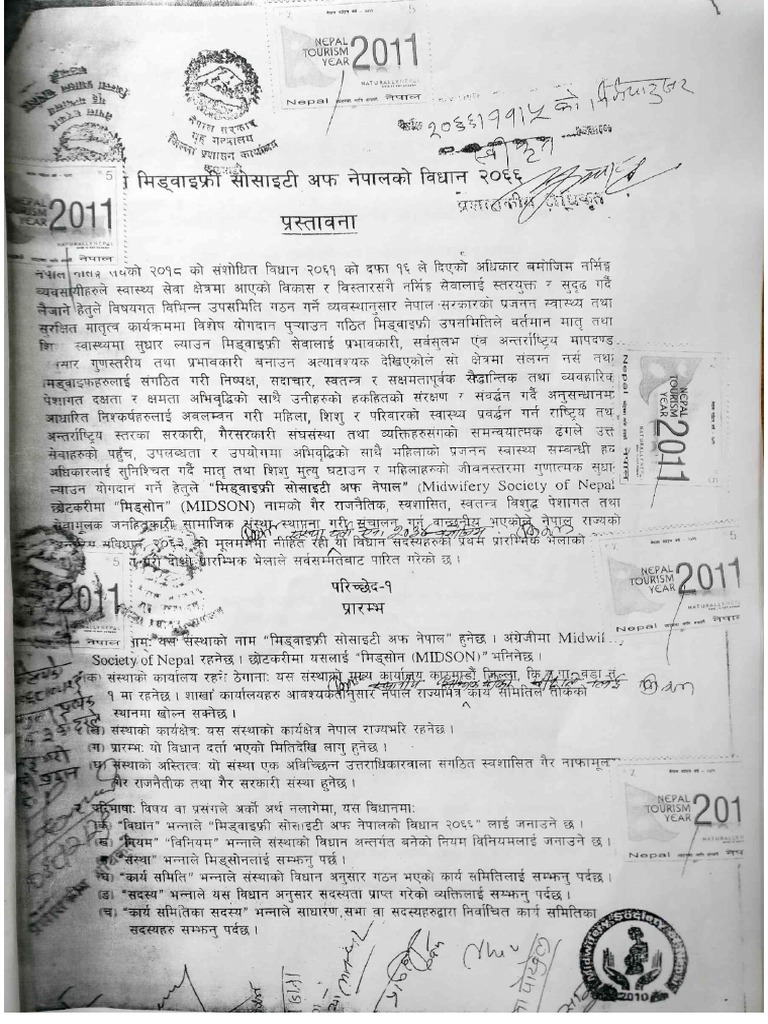 NEPAL
TOURISM
YEAR 2011
NATURALLY NEPAL
Nepal नेपाल
नेपाल सरकार
गृह मन्त्रालय
जिल्ला प्रशासन कार्यालय
२०६६।११।१५ को
स्वीकृत
मिड्वाइफ्री सोसाइटी अफ नेपालको विधान २०६६
प्रशासकीय अधिकृत
प्रस्तावना
2011
नेपाल
नेपाल नर्सिङ्ग संघको २०१८ को संशोधित विधान २०६१ को दफा १६ ले दिएको अधिकार बमोजिम नर्सिङ्ग
व्यवसायीहरुले स्वास्थ्य सेवा क्षेत्रमा आएको विकास र विस्तारसगै नर्सिङ्ग सेवालाई स्तरयुक्त र सुदृढ गर्दै
लैजाने हेतुले विषयगत विभिन्न उपसमिति गठन गर्ने व्यवस्थानुसार नेपाल सरकारको प्रजनन स्वास्थ्य तथा
सुरक्षित मातृत्व कार्यक्रममा विशेष योगदान पुऱ्याउन गठित मिड्वाइफ्री उपसमितिले वर्तमान मातृ तथा
स्वास्थ्यमा सुधार ल्याउन मिड्वाइफ्री सेवालाई प्रभावकारी, सर्वसुलभ एंव अन्तर्राष्ट्रिय मापदण्ड
गुणस्तरीय तथा प्रभावकारी बनाउन अत्यावश्यक देखिएकोले सो क्षेत्रमा संलग्न नर्स तथा
मिड्वाइफहरुलाई संगठित गरी निष्पक्ष, सदाचार, स्वतन्त्र र सक्षमतापूर्वक सैद्धान्तिक तथा व्यवहारिक
पेशागत दक्षता र क्षमता अभिवृद्धिको साथै उनीहरुको हकहितको संरक्षण र संवर्द्धन गर्दै अनुसन्धानमा
आधारित निश्कर्षहरुलाई अवलम्वन गरी महिला, शिशु र परिवारको स्वास्थ्य प्रवर्द्धन गर्न राष्ट्रिय तथ
अन्तर्राष्ट्रिय स्तरका सरकारी, गैरसरकारी संघसंस्था तथा व्यक्तिहरुसंगको समन्वयात्मक ढगले उत्त
सेवाहरुको पहुँच, उपलब्धता र उपयोगमा अभिवृद्धिको साथै महिलाको प्रजनन स्वास्थ्य सम्बन्धी हद
अधिकारलाई सुनिश्चित गर्दै मातृ तथा शिशु मुत्यु घटाउन र महिलाहरुको जीवनस्तरमा गुणात्मक सुधा
ल्याउन योगदान गर्ने हेतुले "मिड्वाइफ्री सोसाइटी अफ नेपाल" (Midwifery Society of Nepal
छोटकरीमा "मिड्सोन" (MIDSON) नामको गैर राजनैतिक, स्वशासित, स्वतन्त्र विशुद्ध पेशागत तथा
सेवामूलक जनहितकारी सामाजिक संस्था स्थापना गरी संचालन गर्न वान्छनीय भएकोले नेपाल राज्यको
संविधान, २०६३ को मूलमर्ममा नीहित रही यो विधान सदस्यहरुको प्रथम प्रारम्भिक भेलाको
दोश्रो प्रारम्भिक भेलाले सर्वसम्मतिबाट पारित गरेको छ ।
NEPAL
TOURISM
YEAR 2011
Nepal
NEPAL
TOURISM
YEAR 2011
Nepal
परिच्छेद-१
प्रारम्भ
2011
नेपाल
नाम: यस संस्थाको नाम "मिड्वाइफ्री सोसाइटी अफ नेपाल" हुनेछ । अंग्रेजीमा Midwif
Society of Nepal रहनेछ । छोटकरीमा यसलाई "मिड्सोन (MIDSON)" भनिनेछ ।
(क) संस्थाको कार्यालय रहने ठेगाना: यस संस्थाको मुख्य कार्यालय काठमाण्डौ जिल्ला,
१ मा रहनेछ । शाखा कार्यालयहरु आवश्यकतानुसार नेपाल राज्यभित्र कार्य समितिले तोकेको
स्थानमा खोल्न सक्नेछ ।
(ख) संस्थाको कार्यक्षेत्र: यस संस्थाको कार्यक्षेत्र नेपाल राज्यभरि रहनेछ ।
(ग) प्रारम्भ: यो विधान दर्ता भएको मितिदेखि लागु हुनेछ ।
(घ) संस्थाको अस्तित्व: यो संस्था एक अविच्छिन्न उत्तराधिकारवाला संगठित स्वशासित गैर नाफामूल
गैर राजनैतीक तथा गैर सरकारी संस्था हुनेछ ।
NEPAL
TOURISM
YEAR 201
Nepal
२. परिभाषा: विषय वा प्रसंगले अर्को अर्थ नलागेमा, यस विधानमा:
(क) "विधान" भन्नाले "मिड्वाइफ्री सोसाइटी अफ नेपालको विधान २०६६" लाई जनाउने छ ।
(ख) "नियम" "विनियम" भन्नाले संस्थाको विधान अन्तर्गत बनेको नियम विनियमलाई जनाउने छ ।
(ग) "संस्था" भन्नाले मिड्सोनलाई सम्झनु पर्छ ।
(घ) "कार्य समिति" भन्नाले संस्थाको विधान अनुसार गठन भएको कार्य समितिलाई सम्झनु पर्दछ ।
(ङ) "सदस्य" भन्नाले यस विधान अनुसार सदस्यता प्राप्त गरेको व्यक्तिलाई सम्झनु पर्दछ ।
(च) "कार्य समितिका सदस्य" भन्नाले साधारण सभा वा सदस्यहरुद्वारा निर्वाचित कार्य समितिका
सदस्यहरु सम्झनु पर्दछ ।
Midwifery Society
2010